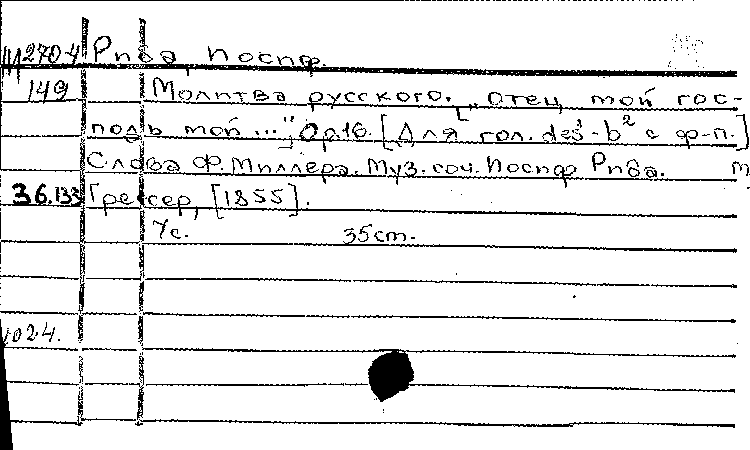 М270-4 Рива, Иосиф.
149 Молитва русского. [„Отец мой гос-
подь мой ..."] Op.16. [Для гол. des¹-b² с ф-п.]
Слова Ф. Миллера. Муз. соч. Иосиф Рива. М
36.133 Грессер, [1855].
7с. 35cm.
1024.